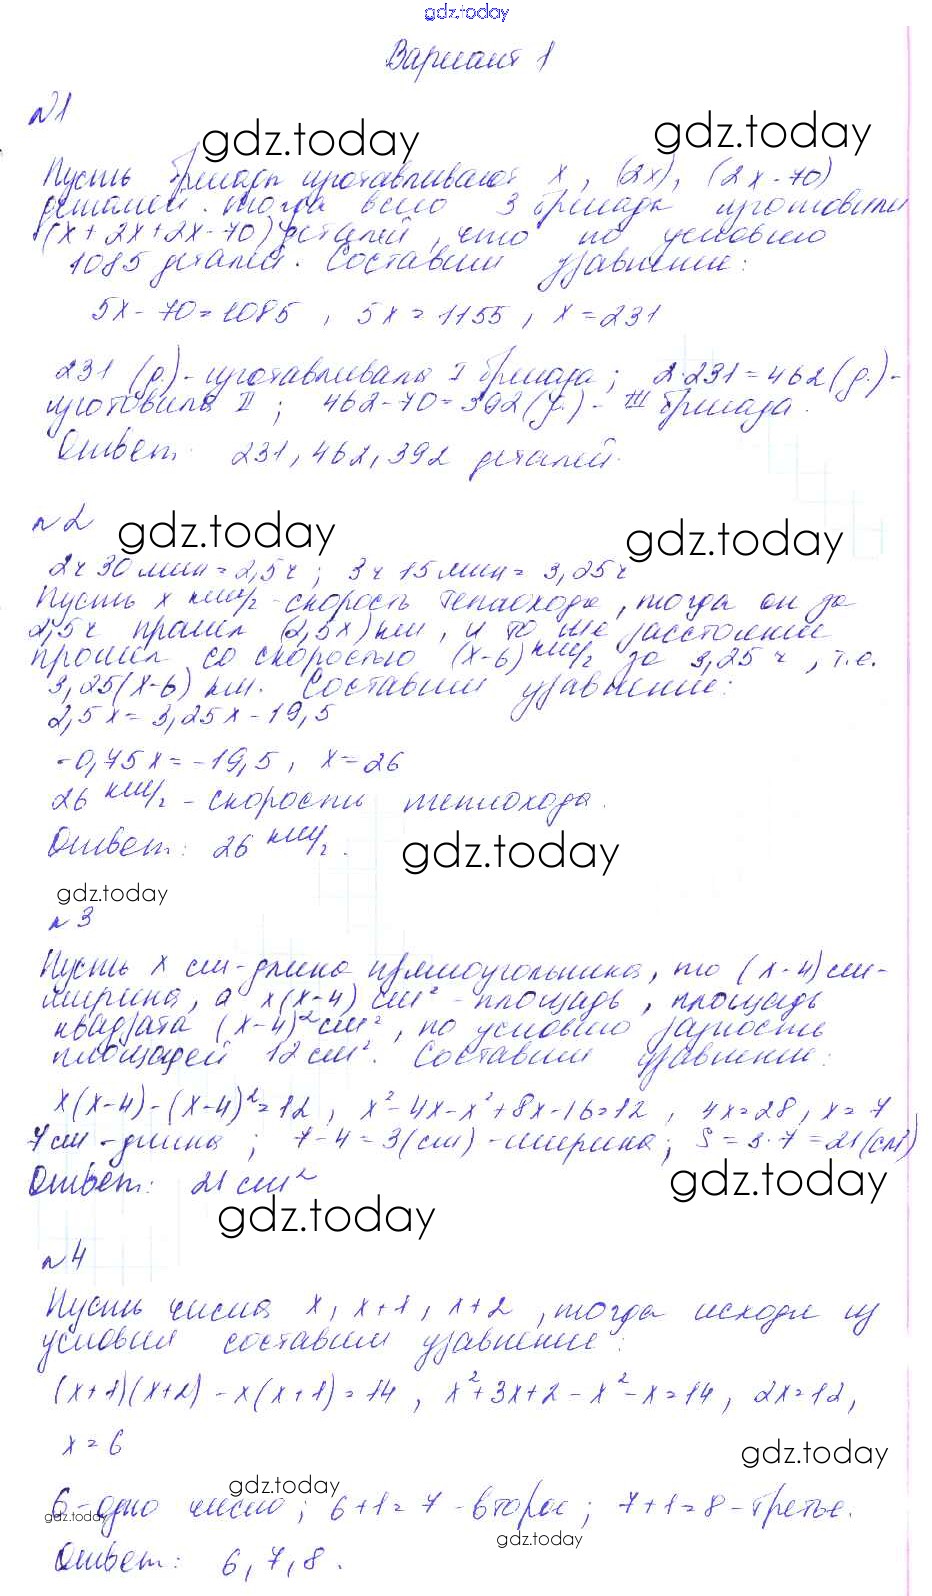 gdz.today
Вариант 1
№1
gdz.today gdz.today
Пусть бригады изготавливают x, (2x), (2x-70)
деталей. тогда всего 3 бригады изготовили
(x+2x+2x-70) деталей, что по условию
1085 деталей. Составим уравнение:
5x-70=1085, 5x=1155, x=231
231 (д.)-изготавливала I бригада; 2·231=462(д.)-
изготовила II; 462-70=392(д.)-III бригада.
Ответ: 231, 462, 392 деталей.
№2
gdz.today gdz.today
2ч 30мин=2,5ч; 3ч 15мин=3,25ч
Пусть x км/ч-скорость теплохода, тогда он за
2,5ч прошёл (2,5x)км, и то же расстояние
прошёл со скоростью (x-6)км/ч за 3,25ч, т.е.
3,25(x-6) км. Составим уравнение:
2,5x=3,25x-19,5
-0,75x=-19,5, x=26
26 км/ч-скорость теплохода.
Ответ: 26 км/ч.
gdz.today
gdz.today
№3
Пусть x см-длина прямоугольника, то (x-4)см-
ширина, а x(x-4) см²-площадь, площадь
квадрата (x-4)²см², по условию разность
площадей 12 см². Составим уравнение:
x(x-4)-(x-4)²=12, x²-4x-x²+8x-16=12, 4x=28, x=7
7см-длина; 7-4=3(см)-ширина; S=3·7=21(см²)
Ответ: 21 см²
gdz.today
gdz.today
№4
Пусть числа x, x+1, x+2, тогда исходя из
условия составим уравнение:
(x+1)(x+2)-x(x+1)=14, x²+3x+2-x²-x=14, 2x=12,
x=6
gdz.today
gdz.today
6-одно число; 6+1=7-второе; 7+1=8-третье.
gdz.today
gdz.today
Ответ: 6, 7, 8.